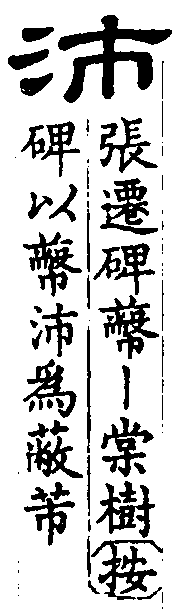 沛
張遷碑蔽丨棠樹按
碑以蔽沛爲蔽芾